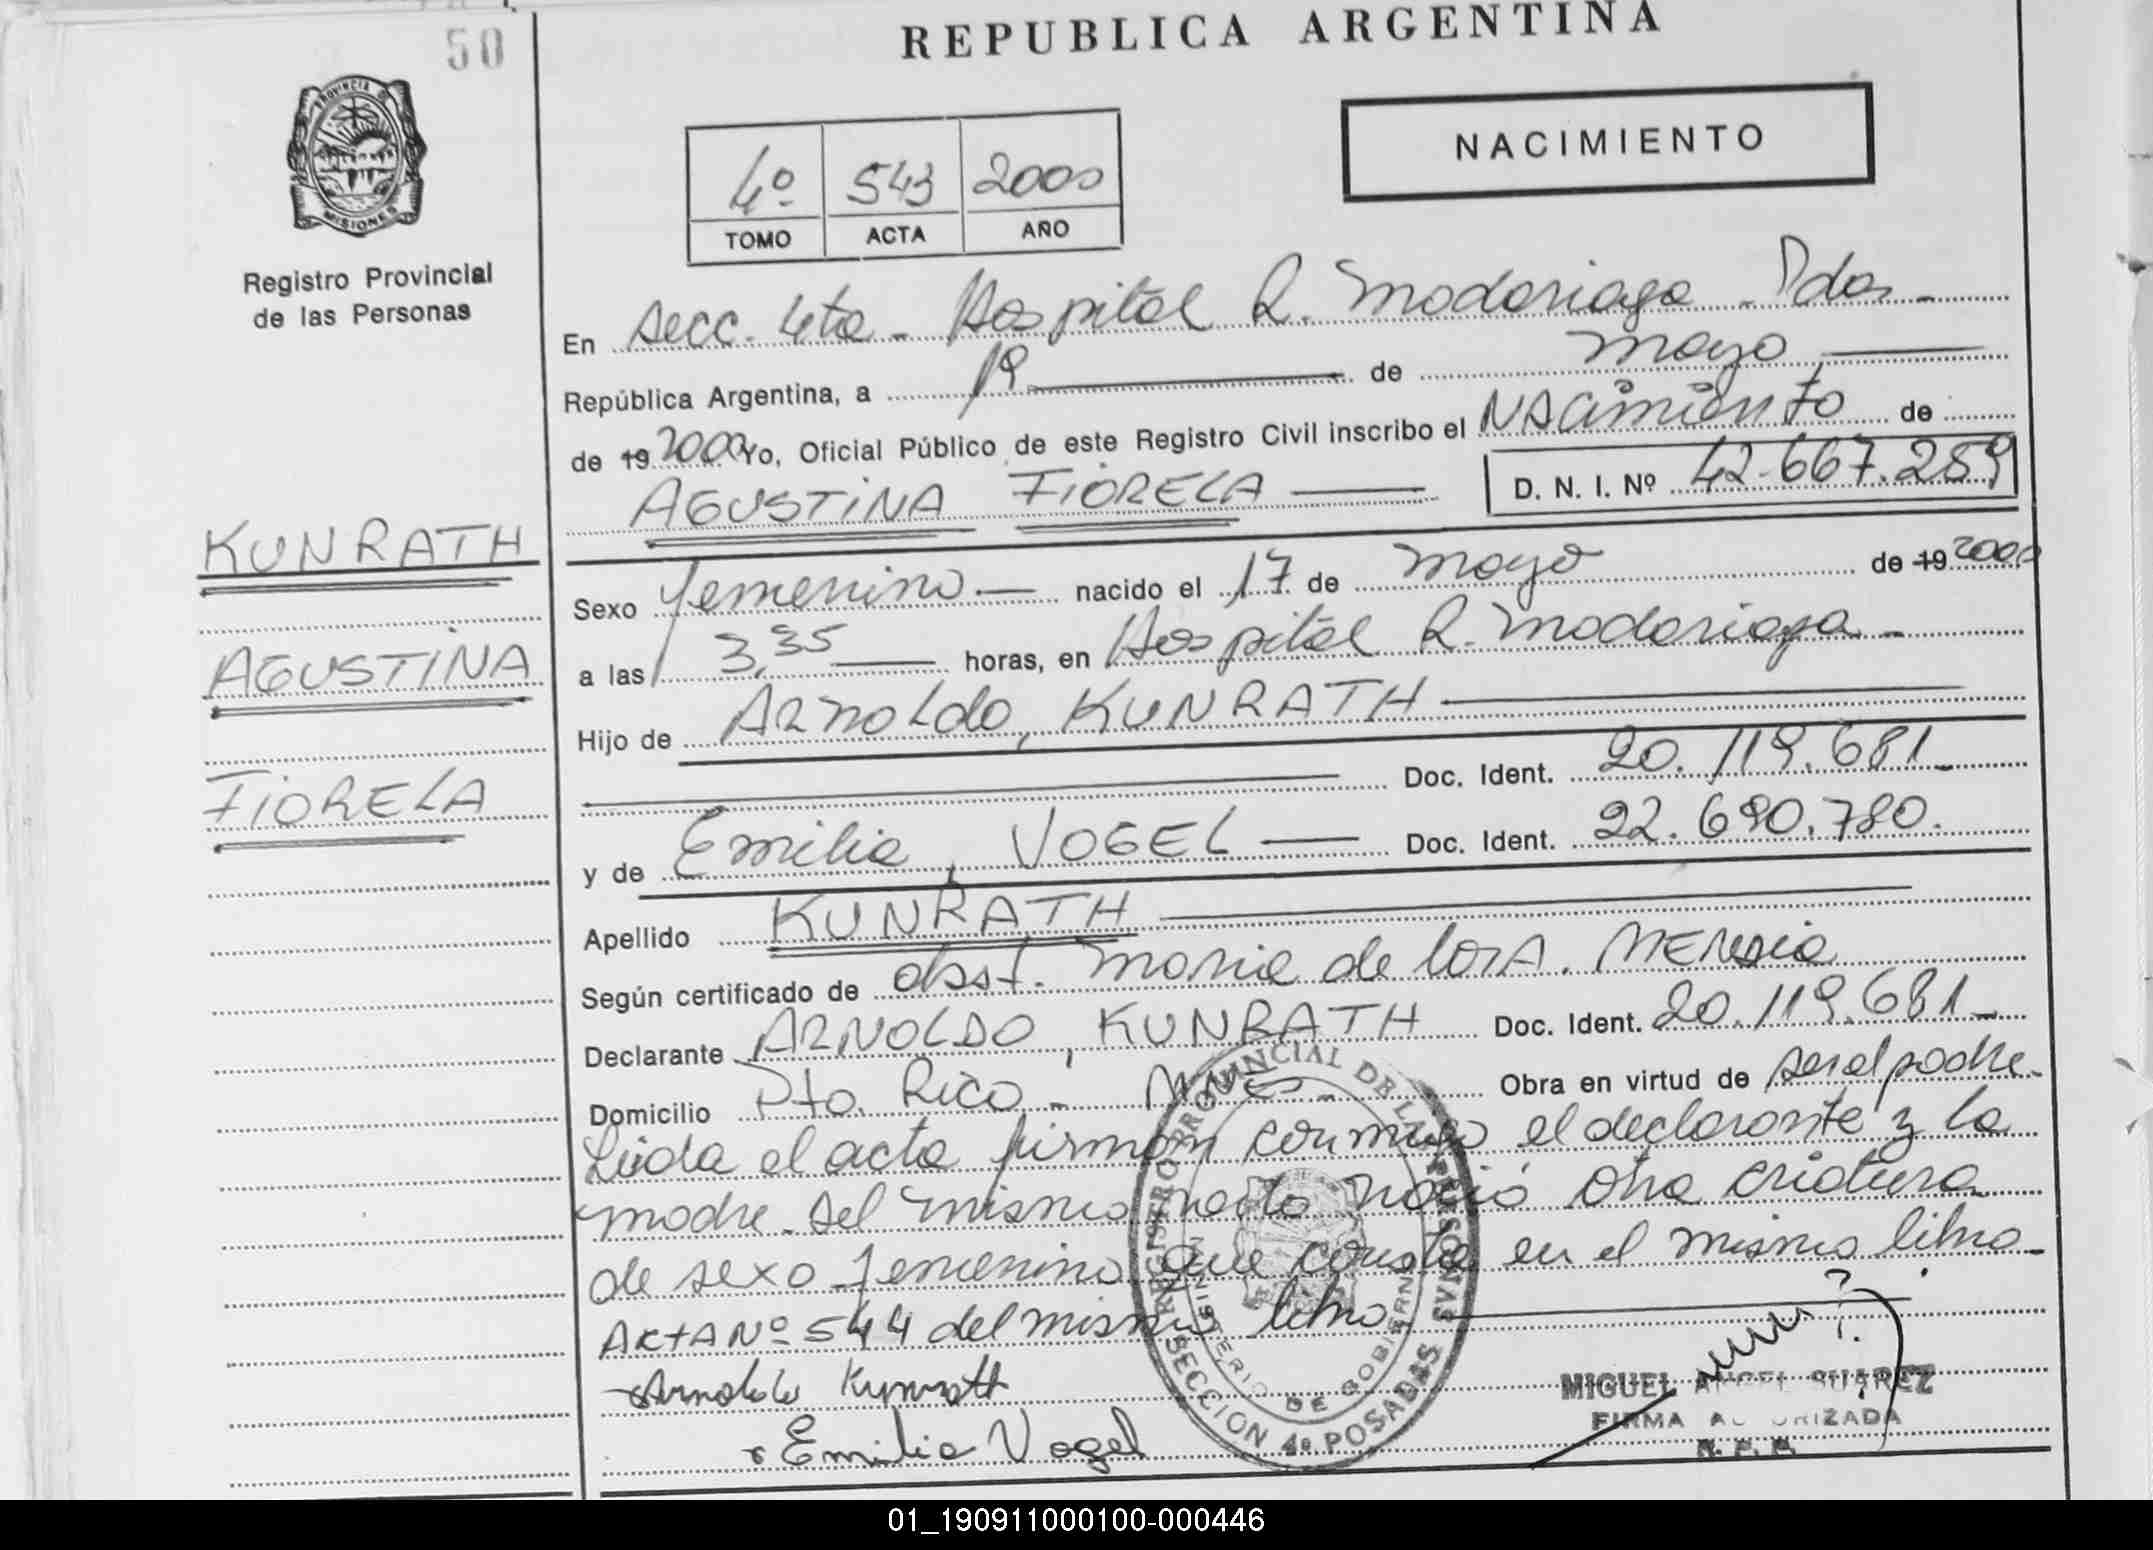 50
REPUBLICA ARGENTINA
PROVINCIA DE
MISIONES
Registro Provincial
de las Personas
4º 543 2000
TOMO ACTA AÑO
NACIMIENTO
En Secc. 4ta - Hospital R. Madariaga - Pdas -
República Argentina, a 19 de mayo
de 19 2000 Yo, Oficial Público de este Registro Civil inscribo el NAcimiento de
AGUSTINA FIORELA
D. N. I. Nº 42.667.259
KUNRATH
AGUSTINA
FIORELA
Sexo femenino nacido el 17 de mayo de 19 2000
a las 3,35 horas, en Hospital R. Madariaga -
Hijo de Arnoldo, KUNRATH
Doc. Ident. 20.119.681-
y de Emilia, VOGEL Doc. Ident. 22.690.780.
Apellido KUNRATH
Según certificado de obst. Maria de los A.
Declarante ARNOLDO, KUNRATH Doc. Ident. 20.119.681-
Domicilio Pto. Rico - Mnes - Obra en virtud de ser el padre.
Leída el acta firman conmigo el declarante y la
madre. Del mismo parto nació otra criatura
de sexo femenino que consta en el mismo libro.
Acta Nº 544 del mismo libro
Arnoldo Kunrath
Emilia Vogel
REGISTRO PROVINCIAL DE LAS PERSONAS
MINISTERIO DE GOBIERNO
SECCION 4º POSADAS
MIGUEL ANGEL SUAREZ
FIRMA AUTORIZADA
01_190911000100-000446